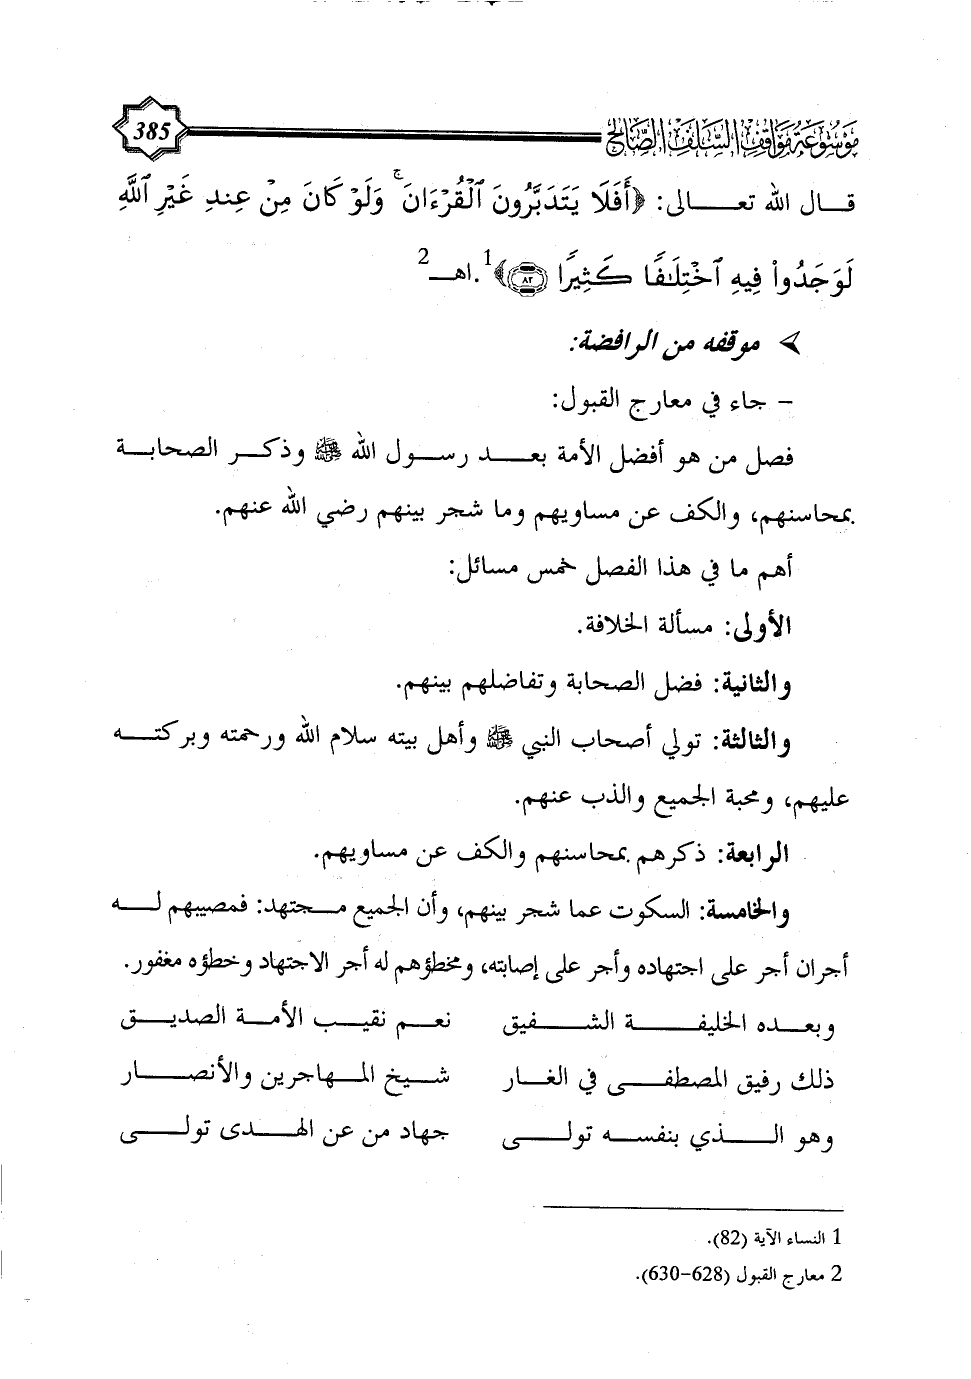 موسوعة مواقف السلف الصالح
385
قال الله تعالى: ﴿أَفَلَا يَتَدَبَّرُونَ ٱلْقُرْءَانَ ۚ وَلَوْ كَانَ مِنْ عِندِ غَيْرِ ٱللَّهِ
لَوَجَدُوا۟ فِيهِ ٱخْتِلَـٰفًا كَثِيرًا ٨٢﴾1. اهـ2
موقفه من الرافضة:
- جاء في معارج القبول:
فصل من هو أفضل الأمة بعد رسول الله ﷺ وذكر الصحابة
بمحاسنهم، والكف عن مساويهم وما شجر بينهم رضي الله عنهم.
أهم ما في هذا الفصل خمس مسائل:
الأولى: مسألة الخلافة.
والثانية: فضل الصحابة وتفاضلهم بينهم.
والثالثة: تولي أصحاب النبي ﷺ وأهل بيته سلام الله ورحمته وبركته
عليهم، ومحبة الجميع والذب عنهم.
الرابعة: ذكرهم بمحاسنهم والكف عن مساويهم.
والخامسة: السكوت عما شجر بينهم، وأن الجميع مجتهد: فمصيبهم له
أجران أجر على اجتهاده وأجر على إصابته، ومخطؤهم له أجر الاجتهاد وخطؤه مغفور.
وبعده الخليفة الشفيق نعم نقيب الأمة الصديق
ذلك رفيق المصطفى في الغار شيخ المهاجرين والأنصار
وهو الذي بنفسه تولى جهاد من عن الهدى تولى
1 النساء الآية (82).
2 معارج القبول (628-630).